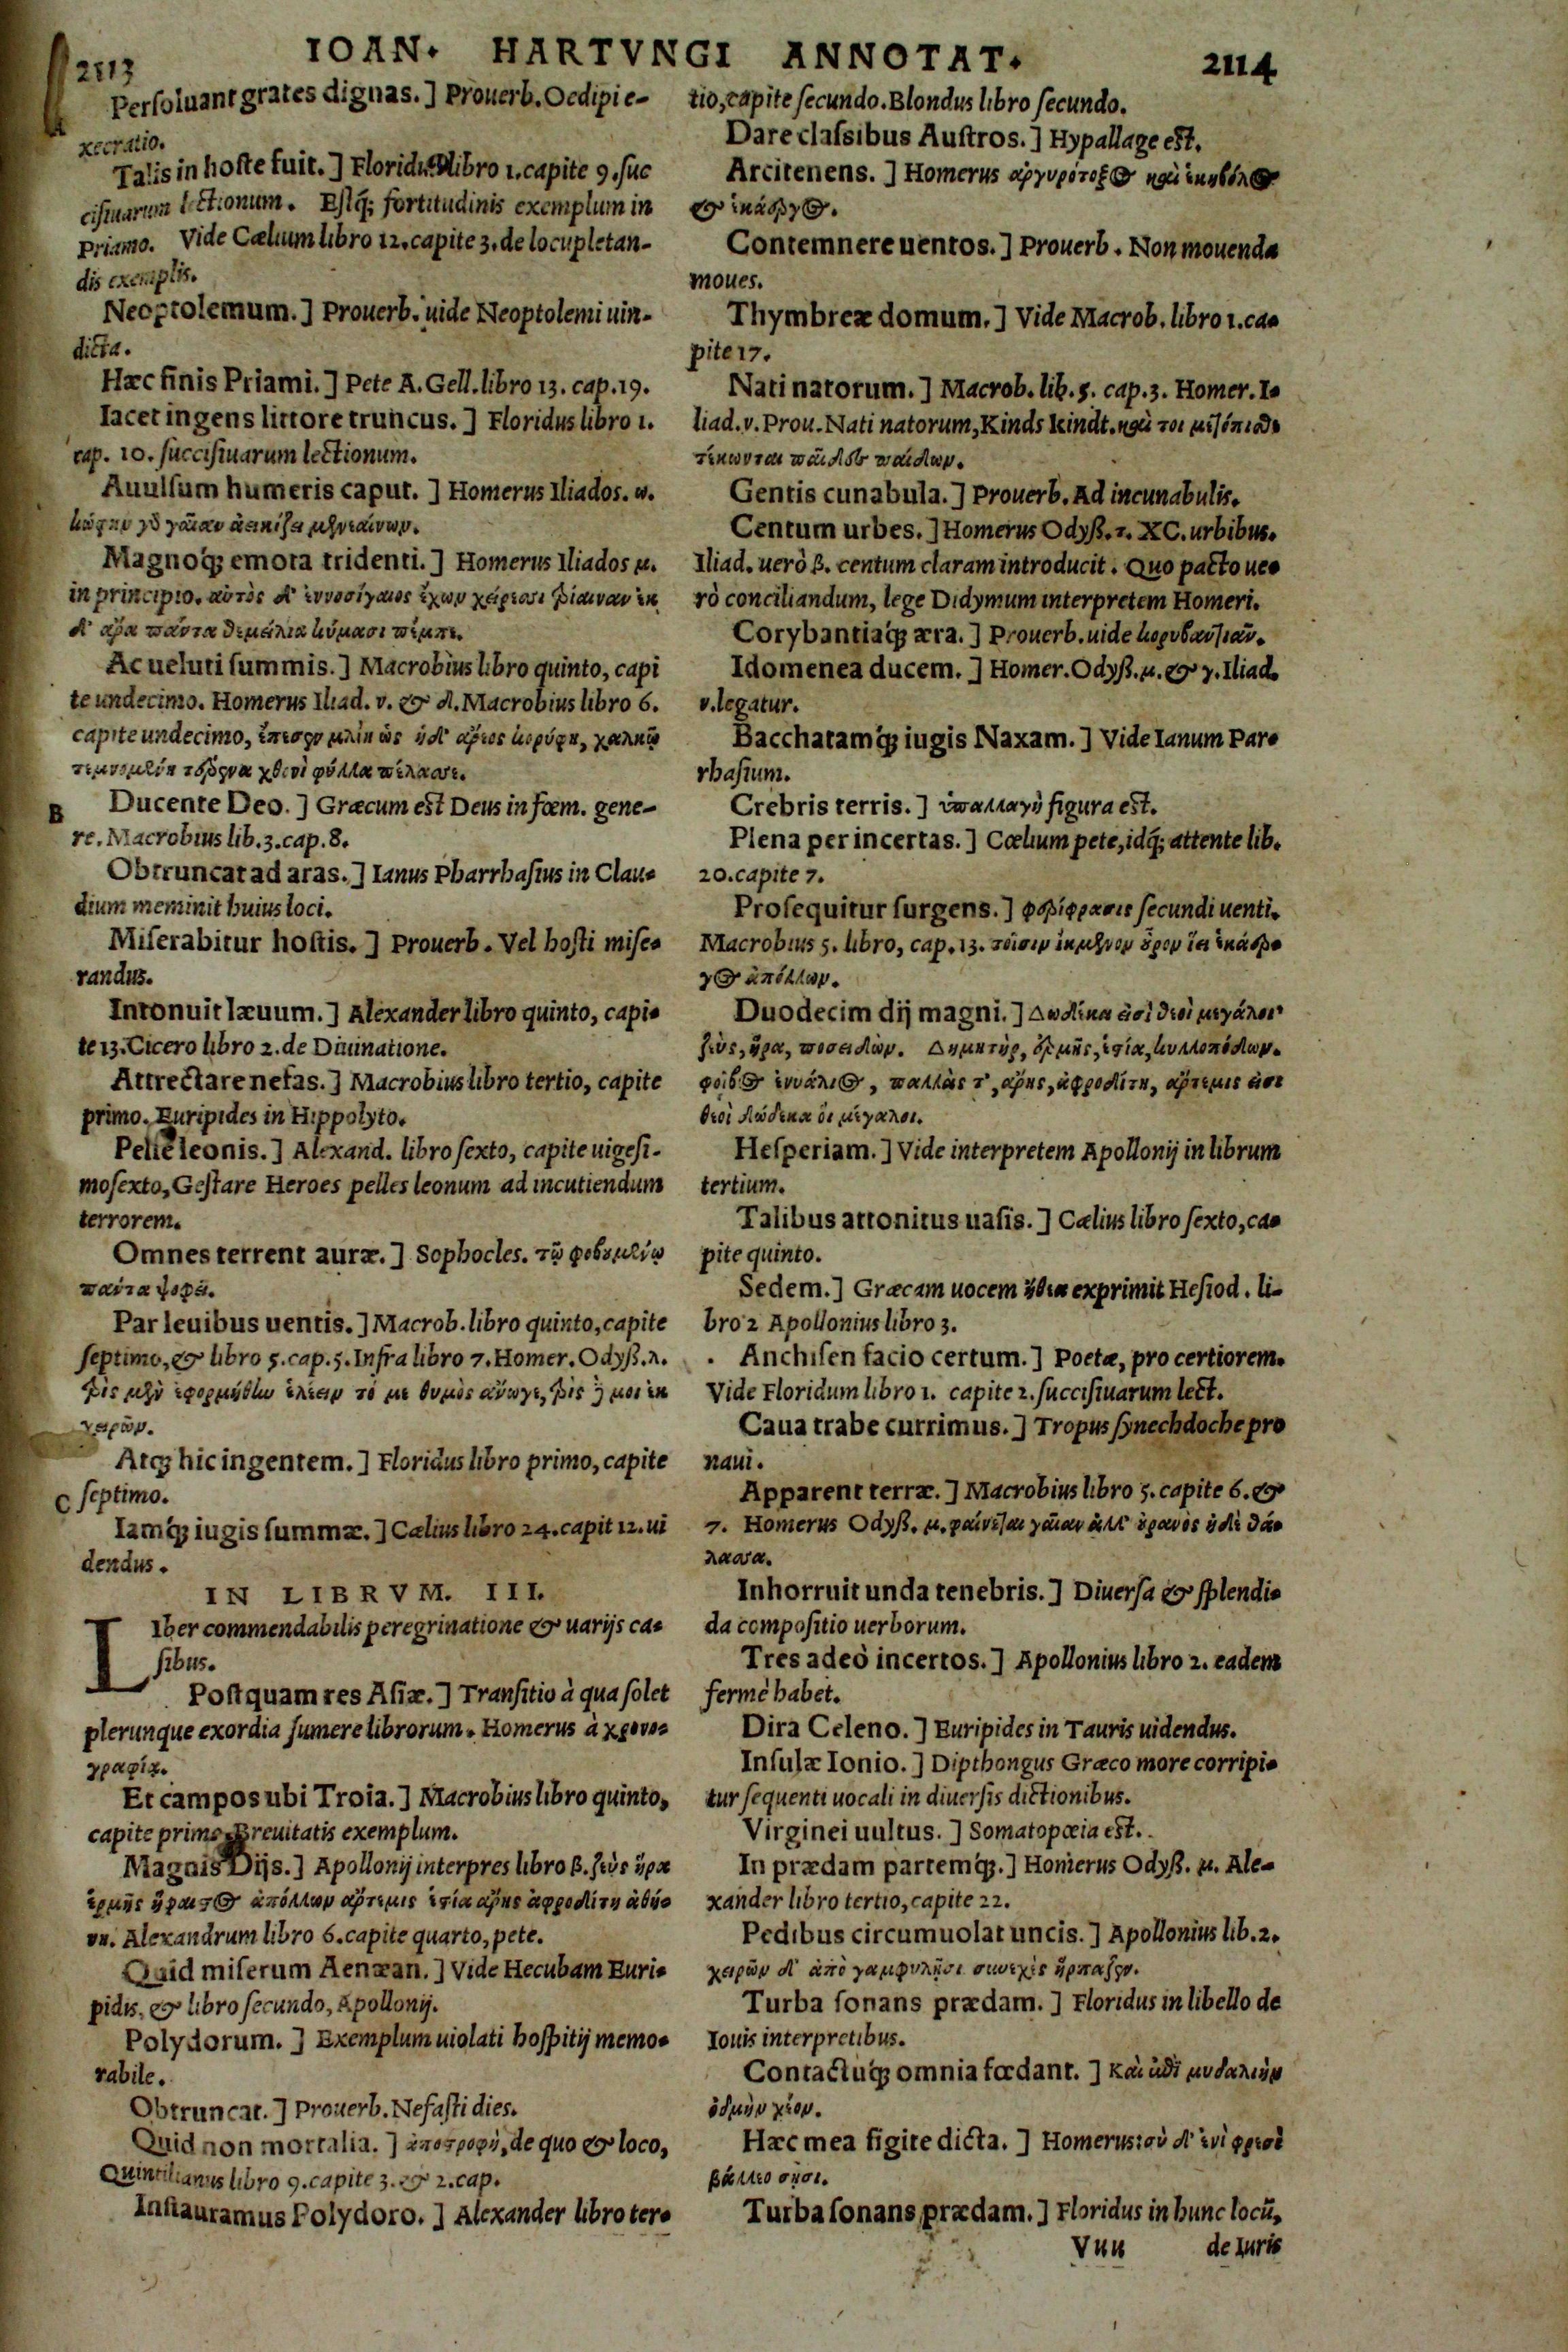 2113
IOAN. HARTVNGI ANNOTAT.
2114
Persoluant grates dignas.] Prouerb. Oedipi e-
xecratio.
Talis in hoste fuit.] Floridus libro 1. capite 9. suc
cisiuarum lectionum. Estq́; fortitudinis exemplum in
Priamo. Vide Cælium libro 12. capite 3. de locupletan-
dis exemplis.
Neoptolemum.] Prouerb. uide Neoptolemi uin-
dicta.
Hæc finis Priami.] Pete A. Gell. libro 13. cap. 19.
Iacet ingens littore truncus.] Floridus libro 1.
cap. 10. succisiuarum lectionum.
Auulsum humeris caput.] Homerus Iliados. ω.
κώφην γὸ γαῖαν ἀεικίζει μϟνεαίνων.
Magnoq́; emota tridenti.] Homerus Iliados μ.
in principio. αὐτὸς δ' ἐννοσίγαιος ἔχων χείρεσσι τρίαιναν ἐκ
δ' ἄρα πάντα θεμέλια κύμασι πέμπε.
Ac ueluti summis.] Macrobius libro quinto, capi
te undecimo. Homerus Iliad. ν. & δ. Macrobius libro 6.
capite undecimo,
χθονὶ φύλλα πέλασσε.
B Ducente Deo.] Græcum est Deus in fœm. gene-
re. Macrobius lib. 3. cap. 8.
Obtruncat ad aras.] Ianus Pharrhasius in Clau-
dium meminit huius loci.
Miserabitur hostis.] Prouerb. Vel hosti mise-
randus.
Intonuit læuum.] Alexander libro quinto, capi-
te 13. Cicero libro 2. de Diuinatione.
Attrectare nefas.] Macrobius libro tertio, capite
primo. Euripides in Hippolyto.
Pelle leonis.] Alexand. libro sexto, capite uigesi-
mosexto, Gestare Heroes pelles leonum ad incutiendum
terrorem.
Omnes terrent auræ.] Sophocles. τῷ φοβουμένῳ
πάντα ψοφεῖ.
Par leuibus uentis.] Macrob. libro quinto, capite
septimo, & libro 5. cap. 5. Infra libro 7. Homer. Odyß. λ.
τρὶς μὲν ἐφορμήθην ἑλέειν τό με θυμὸς ἄνωγε, τρὶς δέ μοι ἐκ
χειρῶν.
Atq; hic ingentem.] Floridus libro primo, capite
C septimo.
Iamq́; iugis summæ.] Cælius libro 24. capit 12. ui
dendus.
IN LIBRVM. III.
LIber commendabilis peregrinatione & uarijs ca-
sibus.
Postquam res Asiæ.] Transitio à qua solet
plerunque exordia sumere librorum. Homerus à χρονο-
γραφίᾳ.
Et campos ubi Troia.] Macrobius libro quinto,
capite primo. Breuitatis exemplum.
Magnis Dijs.] Apollonij interpres libro β. ζεὺς ἥρα
ἑρμῆς ἥφαιστος ἀπόλλων ἄρτεμις ἑστία ἄρης ἀφροδίτη ἀθή-
νη. Alexandrum libro 6. capite quarto, pete.
Quid miserum Aenæan.] Vide Hecubam Euri-
pidis, & libro secundo, Apollonij.
Polydorum.] Exemplum uiolati hospitij memo-
rabile.
Obtruncat.] Prouerb. Nefasti dies.
Quid non mortalia.] ἀποστροφὴ, de quo & loco,
Quintilianus libro 9. capite 3. & 2. cap.
Instauramus Polydoro.] Alexander libro ter-
tio, capite secundo. Blondus libro secundo.
Dare classibus Austros.] Hypallage est.
Arcitenens.] Homerus ἀργυρότοξος καὶ ἑκηβόλος
& ἑκάεργος.
Contemnere uentos.] Prouerb. Non mouenda
moues.
Thymbreæ domum.] Vide Macrob. libro 1. ca-
pite 17.
Nati natorum.] Macrob. lib. 5. cap. 3. Homer. I-
liad. υ. Prou. Nati natorum, Kinds kindt. καὶ τοι μετόπισθε
τέκωνται παῖδες παίδων.
Gentis cunabula.] Prouerb. Ad incunabulis.
Centum urbes.] Homerus Odyß. τ. XC. urbibus.
Iliad. uerò β. centum claram introducit. Quo pacto ue-
rò conciliandum, lege Didymum interpretem Homeri.
Corybantiaq́; æra.] Prouerb. uide κορυβαντιᾶν.
Idomenea ducem.] Homer. Odyß. μ. & γ. Iliad.
ν. legatur.
Bacchatamq́; iugis Naxam.] Vide Ianum Par-
rhasium.
Crebris terris.] ὑπαλλαγὴ figura est.
Plena per incertas.] Cœlium pete, idq́; attente lib.
20. capite 7.
Prosequitur surgens.] περίφρασις secundi uenti.
Macrobius 5. libro, cap. 13. τοῖσιν ἴκμενον οὖρον ἵει ἑκάερ-
γος ἀπόλλων.
Duodecim dij magni.] Δωδέκα εἰσὶ θεοὶ μεγάλοι
ζεὺς, ἥρα, ποσειδῶν. Δημητὴρ, ἑρμῆς, ἑστία, κυλλοπόδων.
φοῖβος ἐνυάλιος, παλλὰς τ', ἄρης, ἀφροδίτη, ἄρτεμις εἰσι
θεοὶ δώδεκα οἱ μέγαλοι.
Hesperiam.] Vide interpretem Apollonij in librum
tertium.
Talibus attonitus uasis.] Cælius libro sexto, ca-
pite quinto.
Sedem.] Græcam uocem ἤθεα exprimit Hesiod. li-
bro 2 Apollonius libro 3.
Anchisen facio certum.] Poetæ, pro certiorem.
Vide Floridum libro 1. capite 2. succisiuarum lect.
Caua trabe currimus.] Tropus synechdoche pro
naui.
Apparent terræ.] Macrobius libro 5. capite 6. &
7. Homerus Odyß. μ. φαίνεται γαῖαν ἀλλ' οὐρανὸς ἠδὲ θά-
λασσα.
Inhorruit unda tenebris.] Diuersa & splendi-
da compositio uerborum.
Tres adeò incertos.] Apollonius libro 2. eadem
fermè habet.
Dira Celeno.] Euripides in Tauris uidendus.
Insulæ Ionio.] Dipthongus Græco more corripi-
tur sequenti uocali in diuersis dictionibus.
Virginei uultus.] Somatopœia est.
In prædam partemq́;.] Homerus Odyß. μ. Ale-
xander libro tertio, capite 22.
Pedibus circumuolat uncis.] Apollonius lib. 2.
χειρῶν δ' ἀπὸ γαμφυλῇσι συνεχὲς ἥρπαζον.
Turba sonans prædam.] Floridus in libello de
Iouis interpretibus.
Contactuq́; omnia fœdant.] Καὶ μυδαλέην
ὀδμὴν χέον.
Hæc mea figite dicta.] Homerus: σὺ δ' ἐνὶ φρεσὶ
βάλλεο σῇσι.
Turba sonans prædam.] Floridus in hunc locū,
Vuu
de Iuris